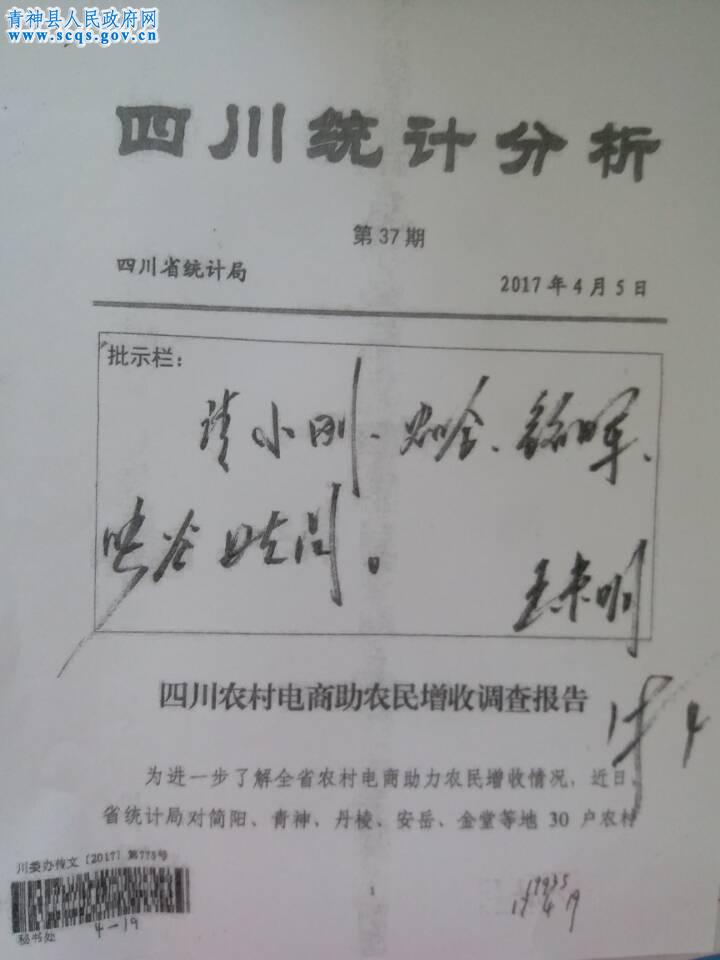 青神县人民政府网
www.scqs.gov.cn
四川统计分析
第37期
四川省统计局
2017年4月5日
批示栏:
请小刚、
阅。
四川农村电商助农民增收调查报告
为进一步了解全省农村电商助力农民增收情况,近日,
省统计局对简阳、青神、丹棱、安岳、金堂等地 30 户农村
川委办传文〔2017〕第775号
秘书处
4-19
1